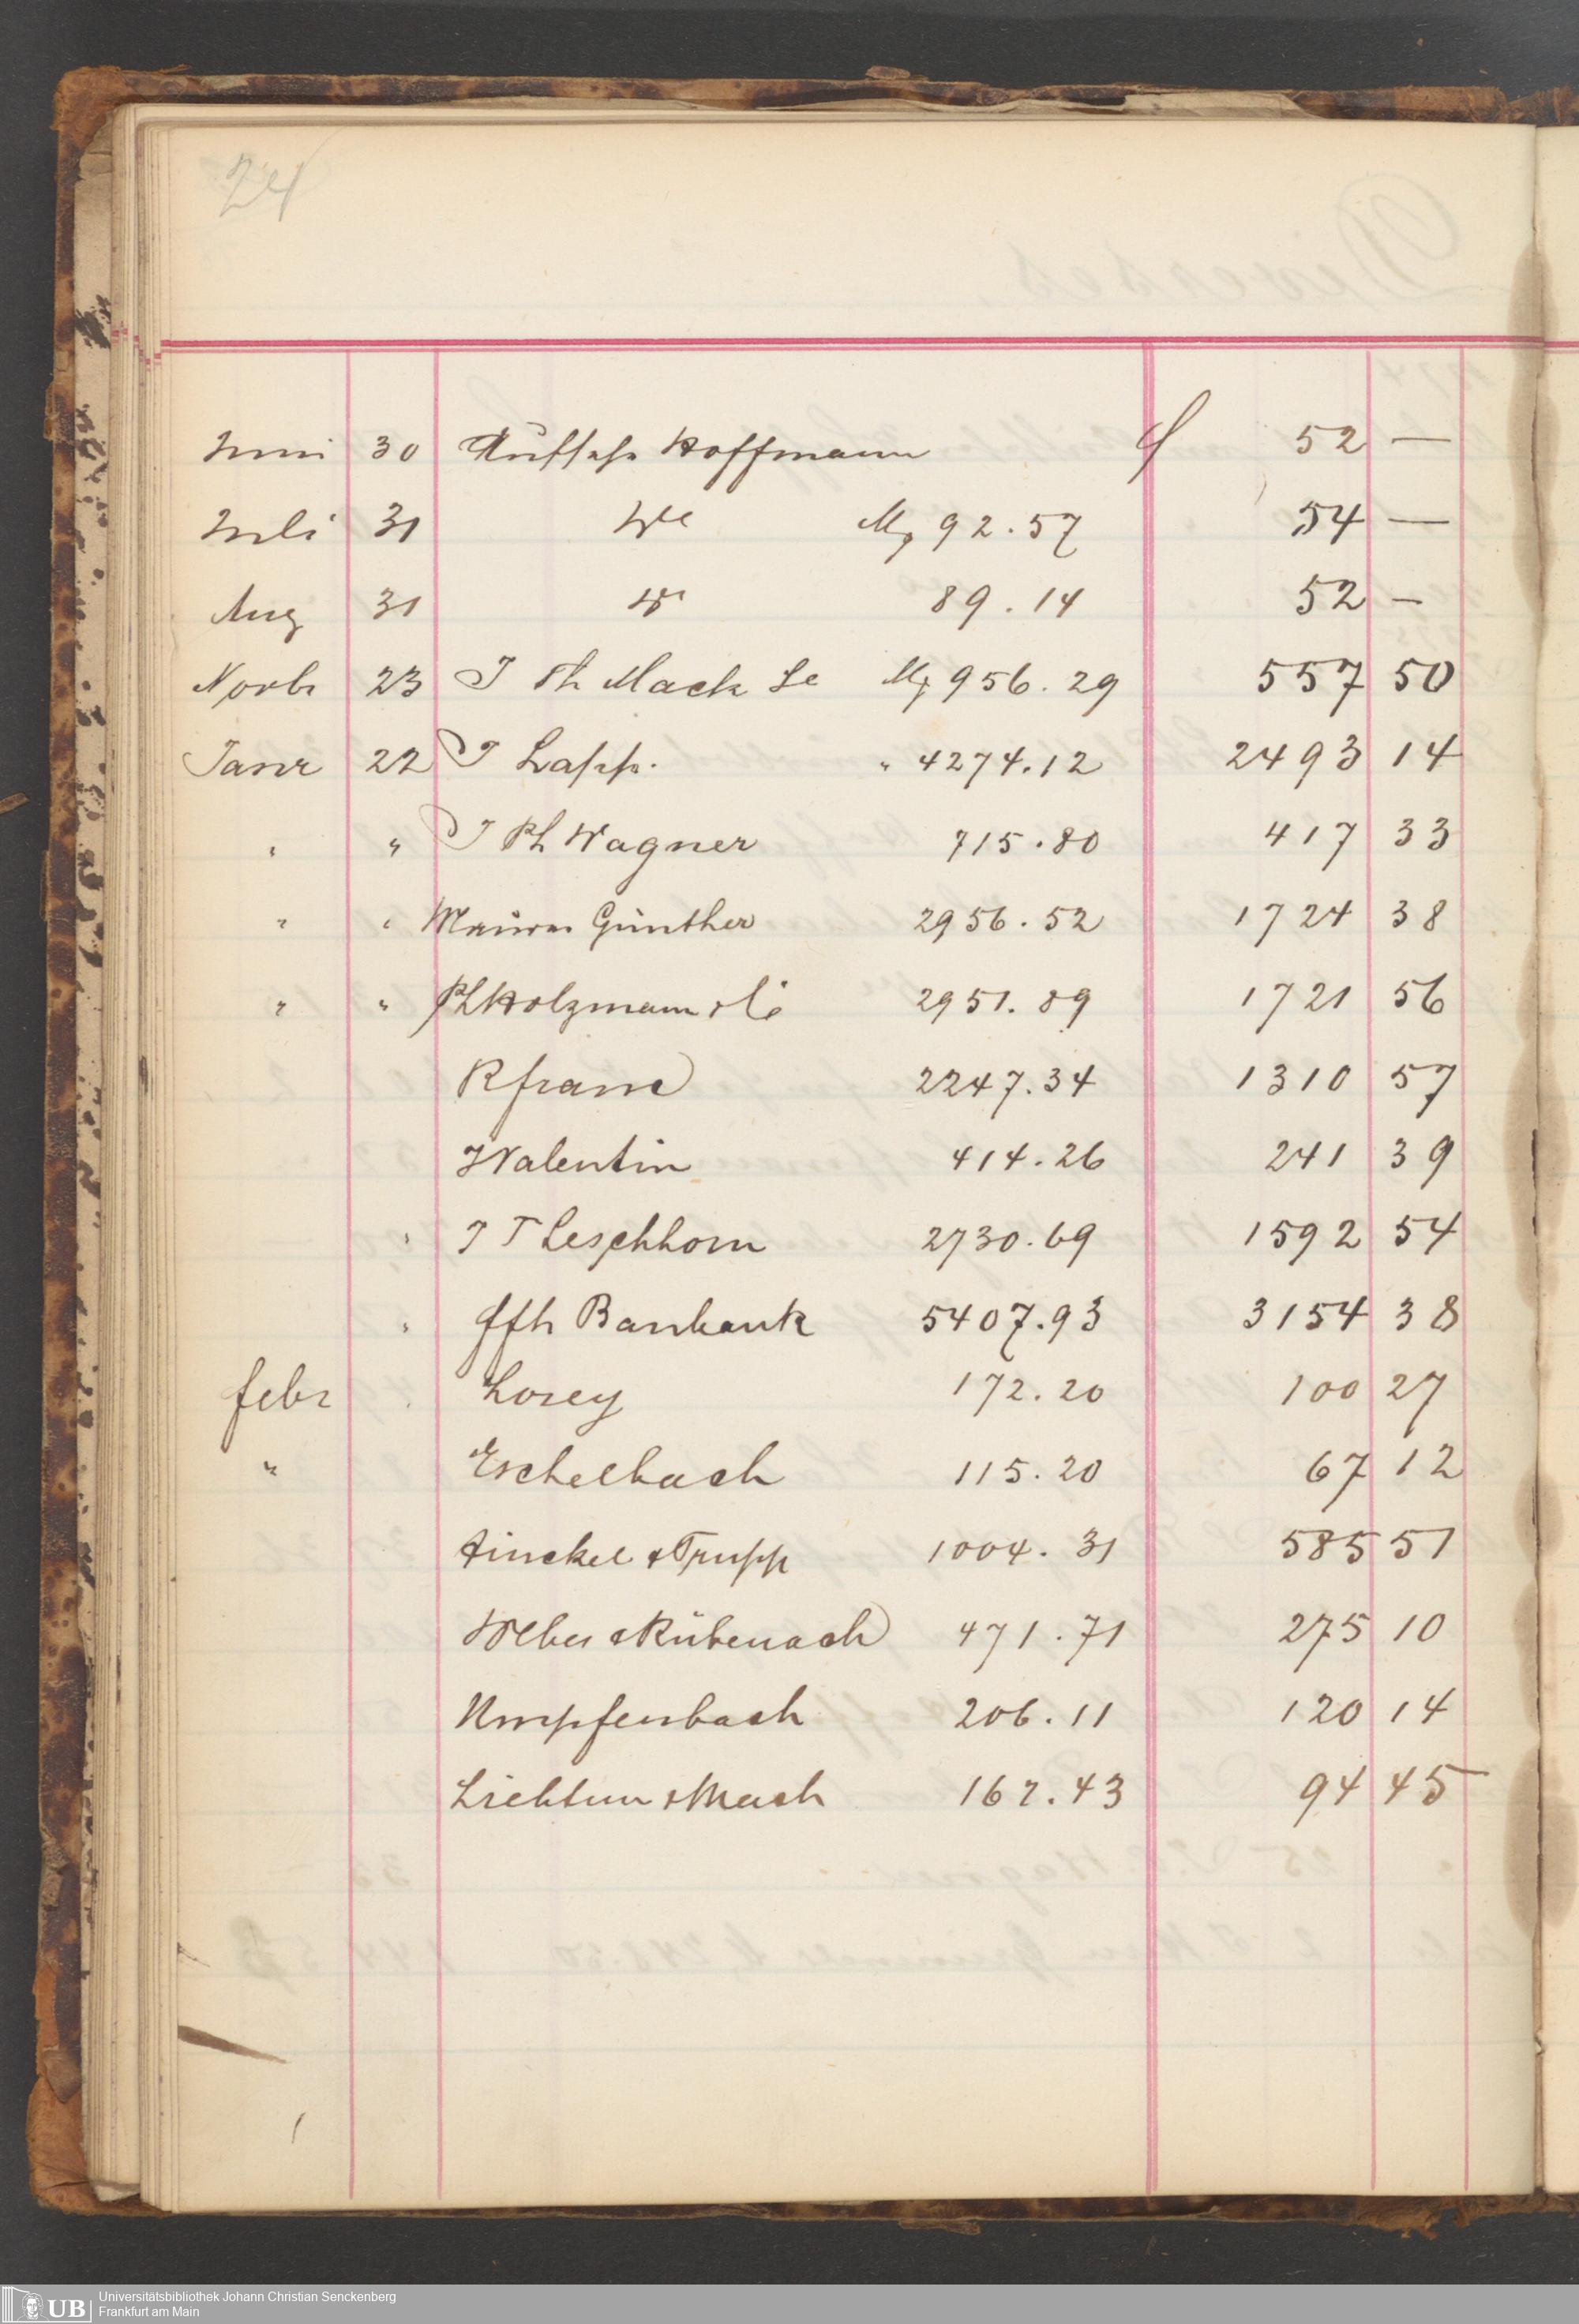 24
Juni 30 Aufseh. Hoffmann f 52 —
Juli 31 Mg 92.57 54 —
Aug 31 89.14 52 —
Novbr 23 J Ph Mack Mg 956.29 557 50
Janr 22 J Lapp. " 4274.12 2493 14
" " J Ph Wagner 715.80 417 33
" " Maurer Günther 2956.52 1724 38
" " Ph Holzmann & Cie 2951.89 1721 56
R franc 2247.34 1310 57
J Valentin 414.26 241 39
" J T Leschhorn 2730.69 1592 54
" ffh Baubank 5407.93 3154 38
febr Losey 172.20 100 27
" Eschelbach 115.20 67 12
& Trupp 1004.31 585 51
Weber & Rübenach 471.71 275 10
Umpfenbach 206.11 120 14
167.43 94 45
Universitätsbibliothek Johann Christian Senckenberg
Frankfurt am Main
UB